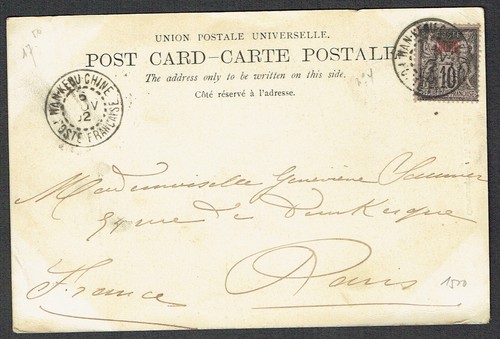 UNION POSTALE UNIVERSELLE.
POST CARD–CARTE POSTALE
The address only to be written on this side.
Côté réservé à l'adresse.
HAN-KEOU-CHINE
POSTE FRANÇAISE
HAN-KEOU-CHINE
10
Mademoiselle Geneviève
rue de Dunkerque
Paris
France
1500